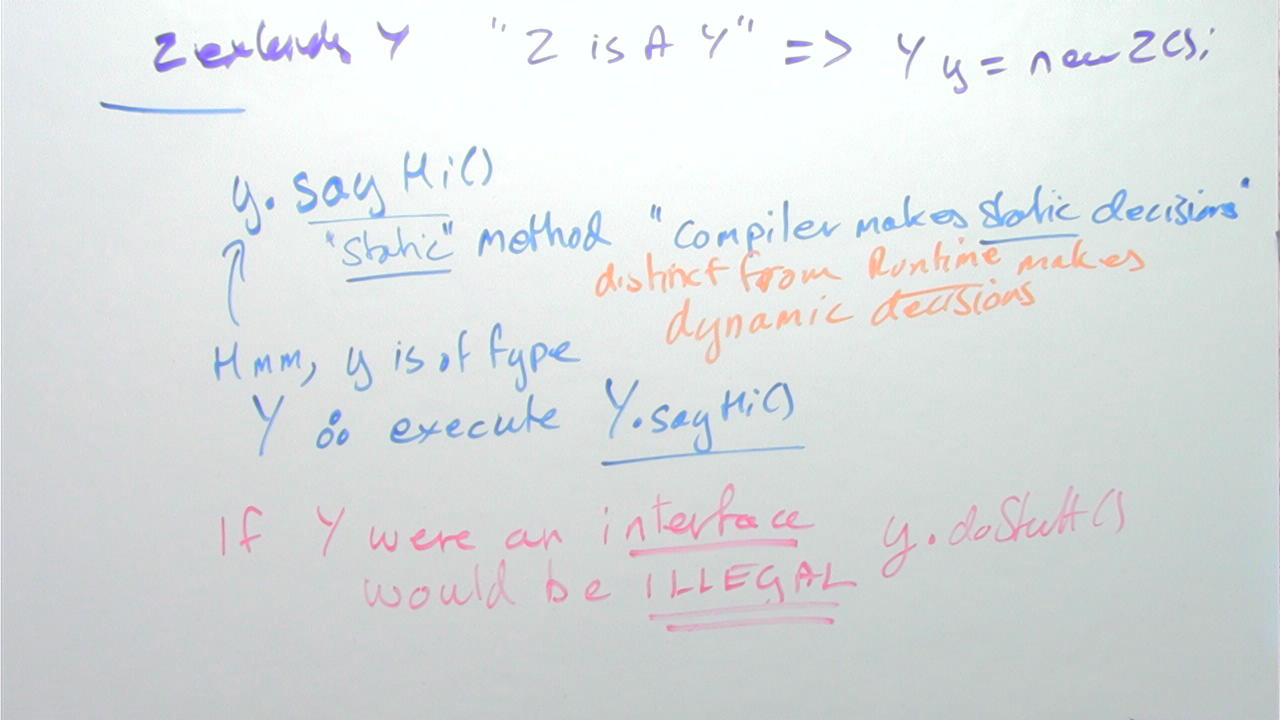 Z extends Y "Z is A Y" => Y y = new Z();
y. say Hi()
"static" method "compiler makes static decisions"
distinct from Runtime makes
dynamic decisions
Hmm, y is of type
Y ⸫ execute Y.sayHi()
If Y were an interface y.doStuff()
would be ILLEGAL